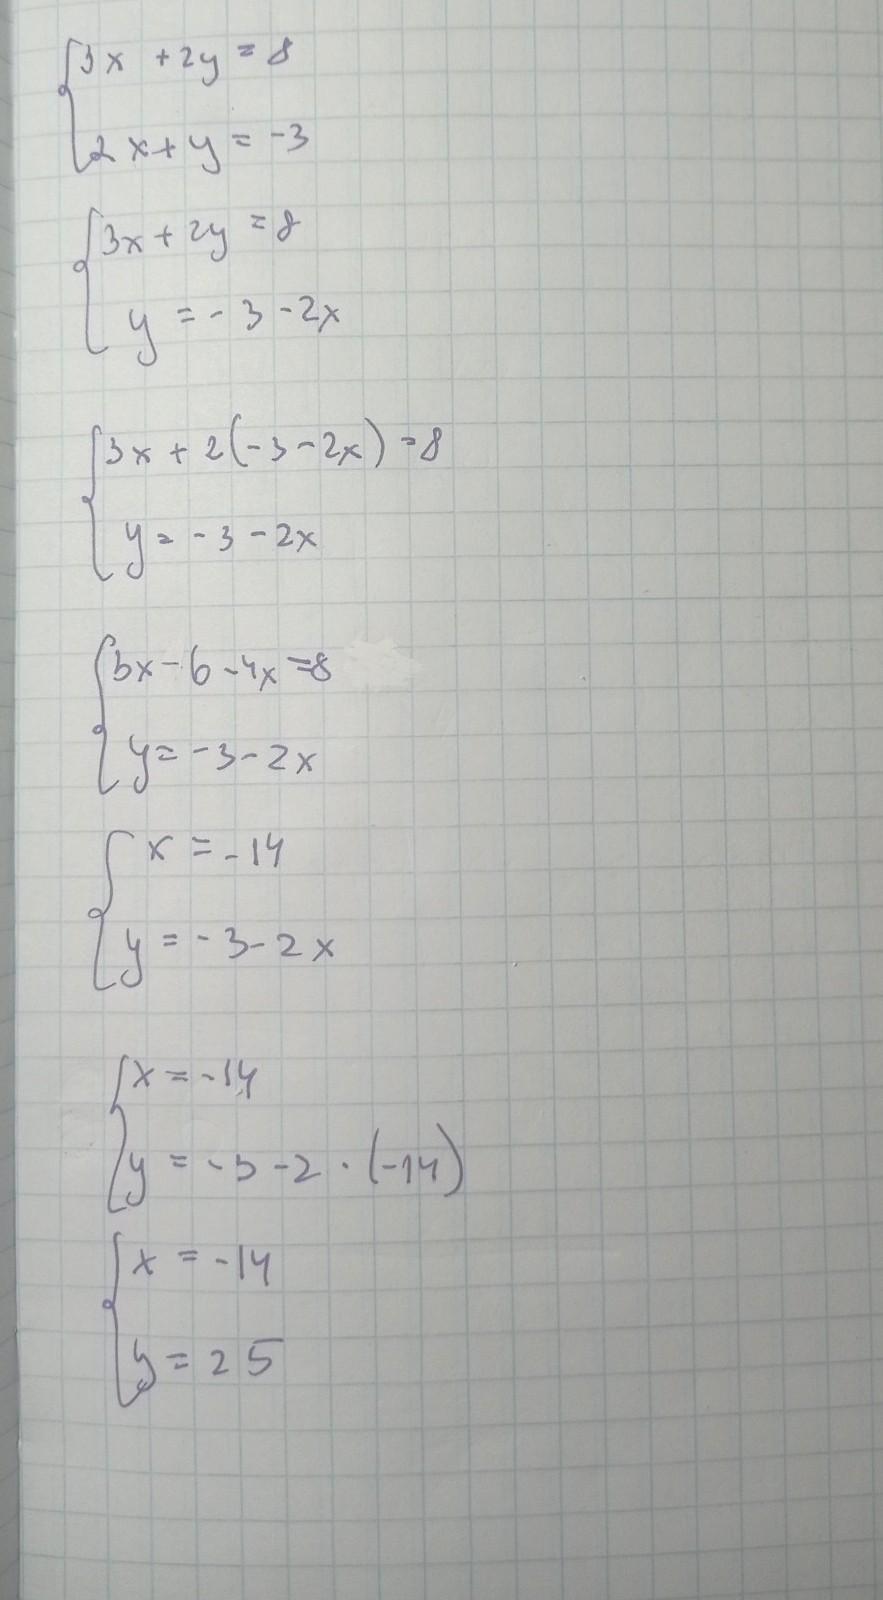 3x + 2y = 8
2x + y = -3
3x + 2y = 8
y = -3 - 2x
3x + 2(-3 - 2x) = 8
y = -3 - 2x
3x - 6 - 4x = 8
y = -3 - 2x
x = -14
y = -3 - 2x
x = -14
y = -3 - 2 · (-14)
x = -14
y = 25